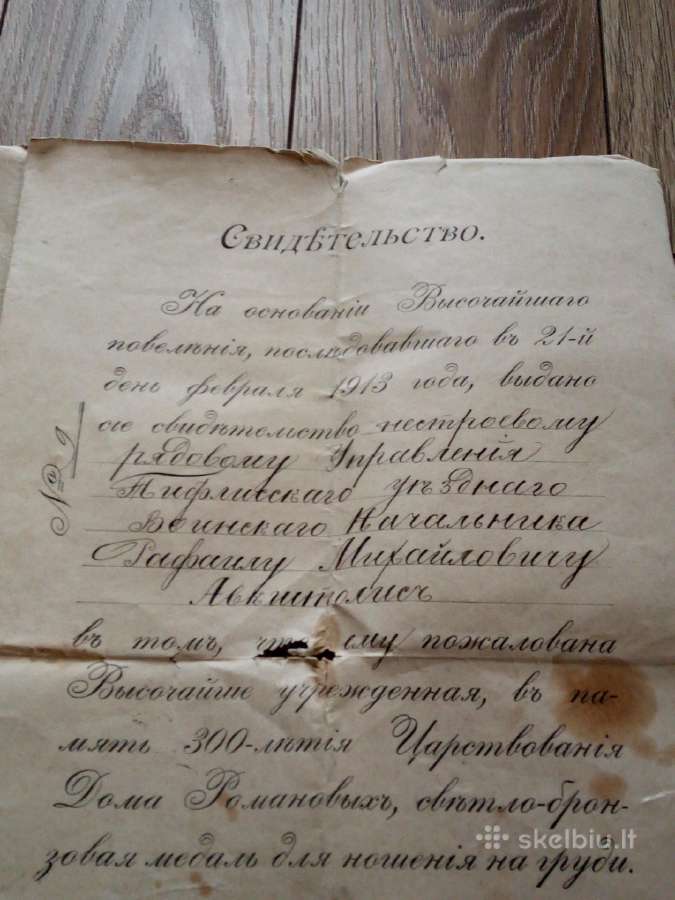 Свидѣтельство.
На основаніи Высочайшаго
повелѣнія, послѣдовавшаго въ 21-й
день февраля 1913 года, выдано
сіе свидѣтельство нестроевому
рядовому Управленія
Тифлисскаго уѣзднаго
Воинскаго Начальника
Рафаилу Михайловичу
Авкштолисъ
въ томъ, что ему пожалована
Высочайше учрежденная, въ па-
мять 300-лѣтія Царствованія
Дома Романовыхъ, свѣтло-брон-
зовая медаль для ношенія на груди.
№ 9
skelbiu.lt